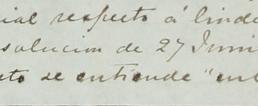 ial respecto á linde
solucion de 27 Juni
to se entiende "